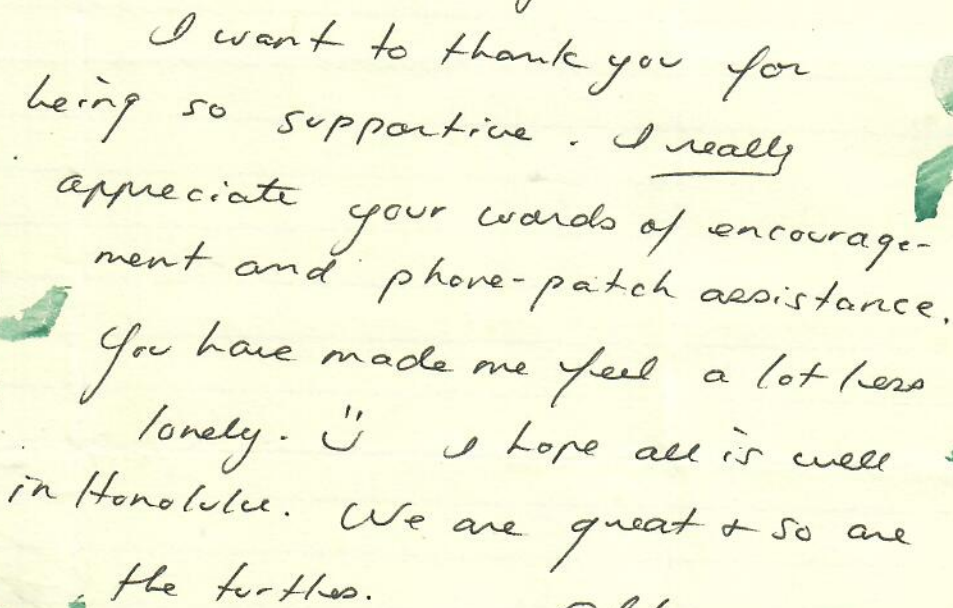 I want to thank you for
being so supportive. I really
appreciate your words of encourage-
ment and phone-patch assistance.
You have made me feel a lot less
lonely. Ü I hope all is well
in Honolulu. We are great + so are
the turtles.